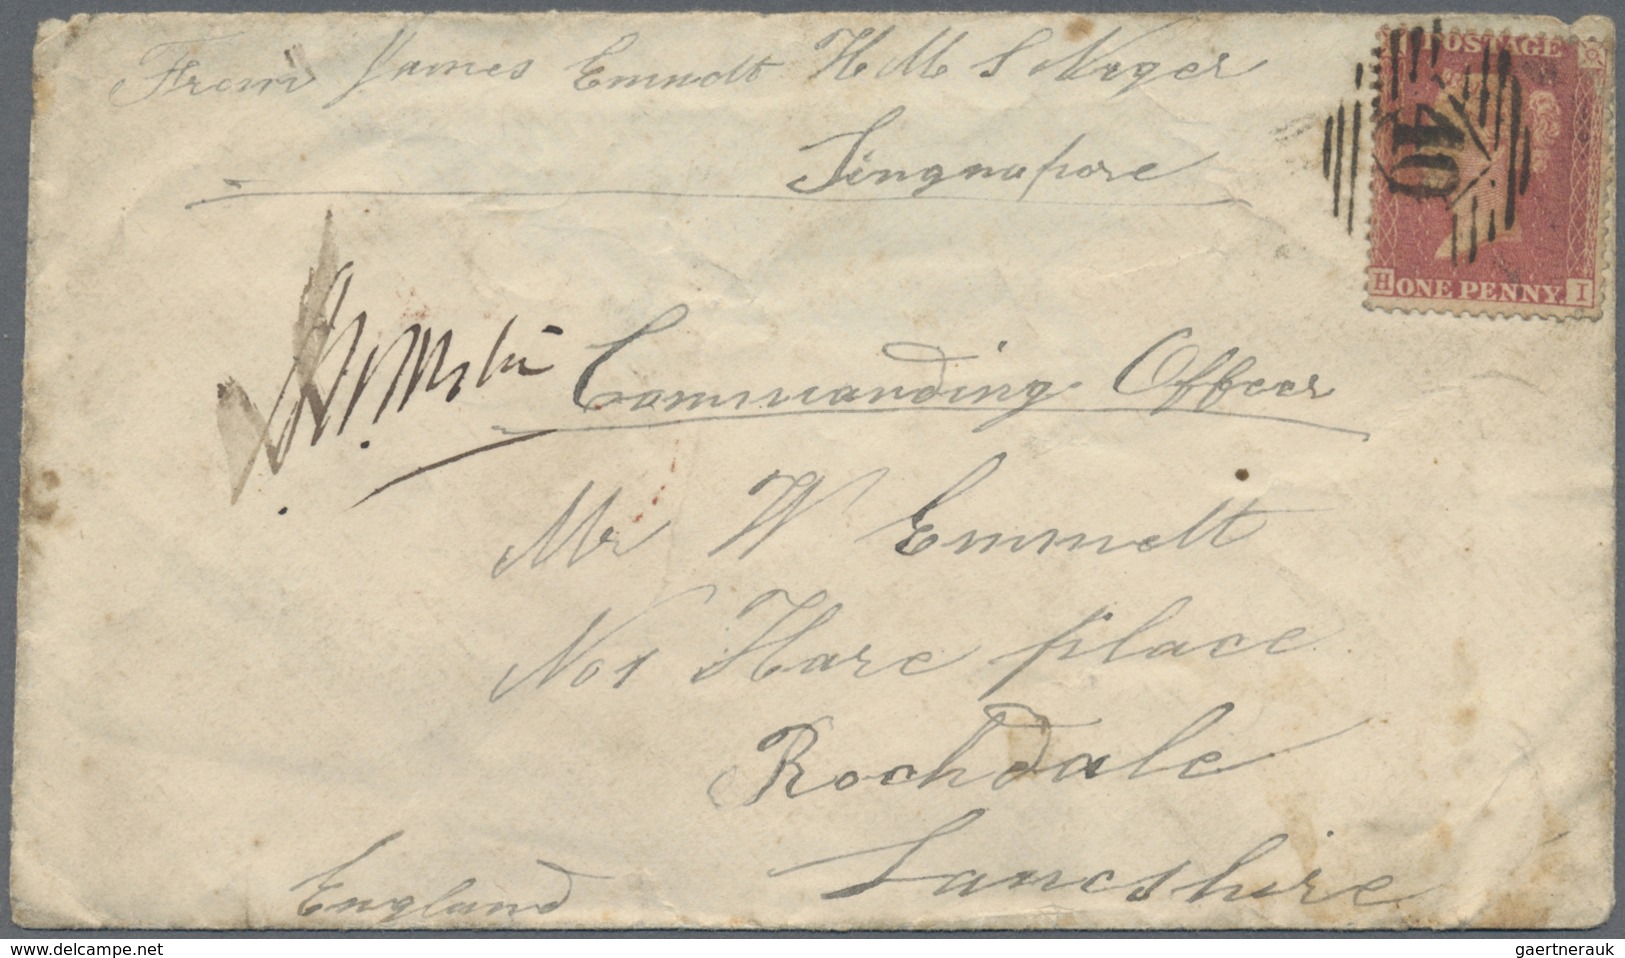 From James Emmett H M S Niger
Singnapore
POSTAGE
40
H ONE PENNY. I
Commanding Officer
Mr W Emmett
No 1 Hare place
Rochdale
Lancshire
England
www.delcampe.net
gaertnerauk